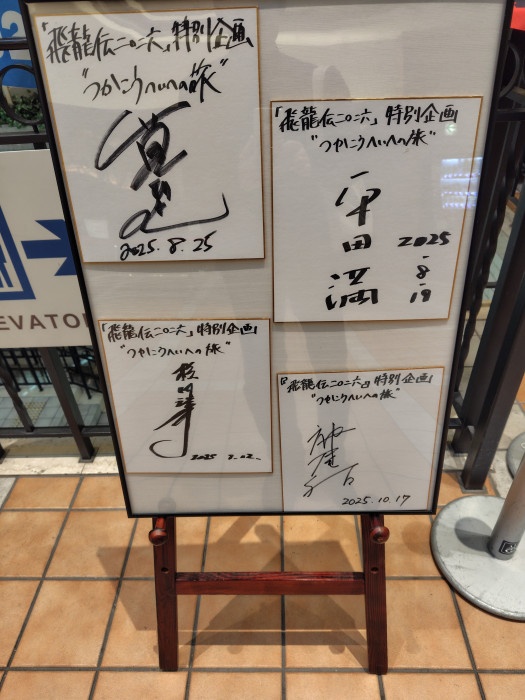 「飛龍伝二〇二六」特別企画
"つかこうへいへの旅"
2025.8.25
「飛龍伝二〇二六」特別企画
"つかこうへいへの旅"
平田満
2025
-
8
-
19
「飛龍伝二〇二六」特別企画
"つかこうへいへの旅"
「飛龍伝二〇二六」特別企画
"つかこうへいへの旅"
2025.10.17
EVATO